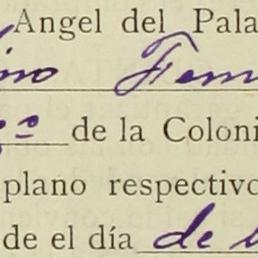 Angel del Pala
no Fern
de la Coloni
plano respectivo
de el día de